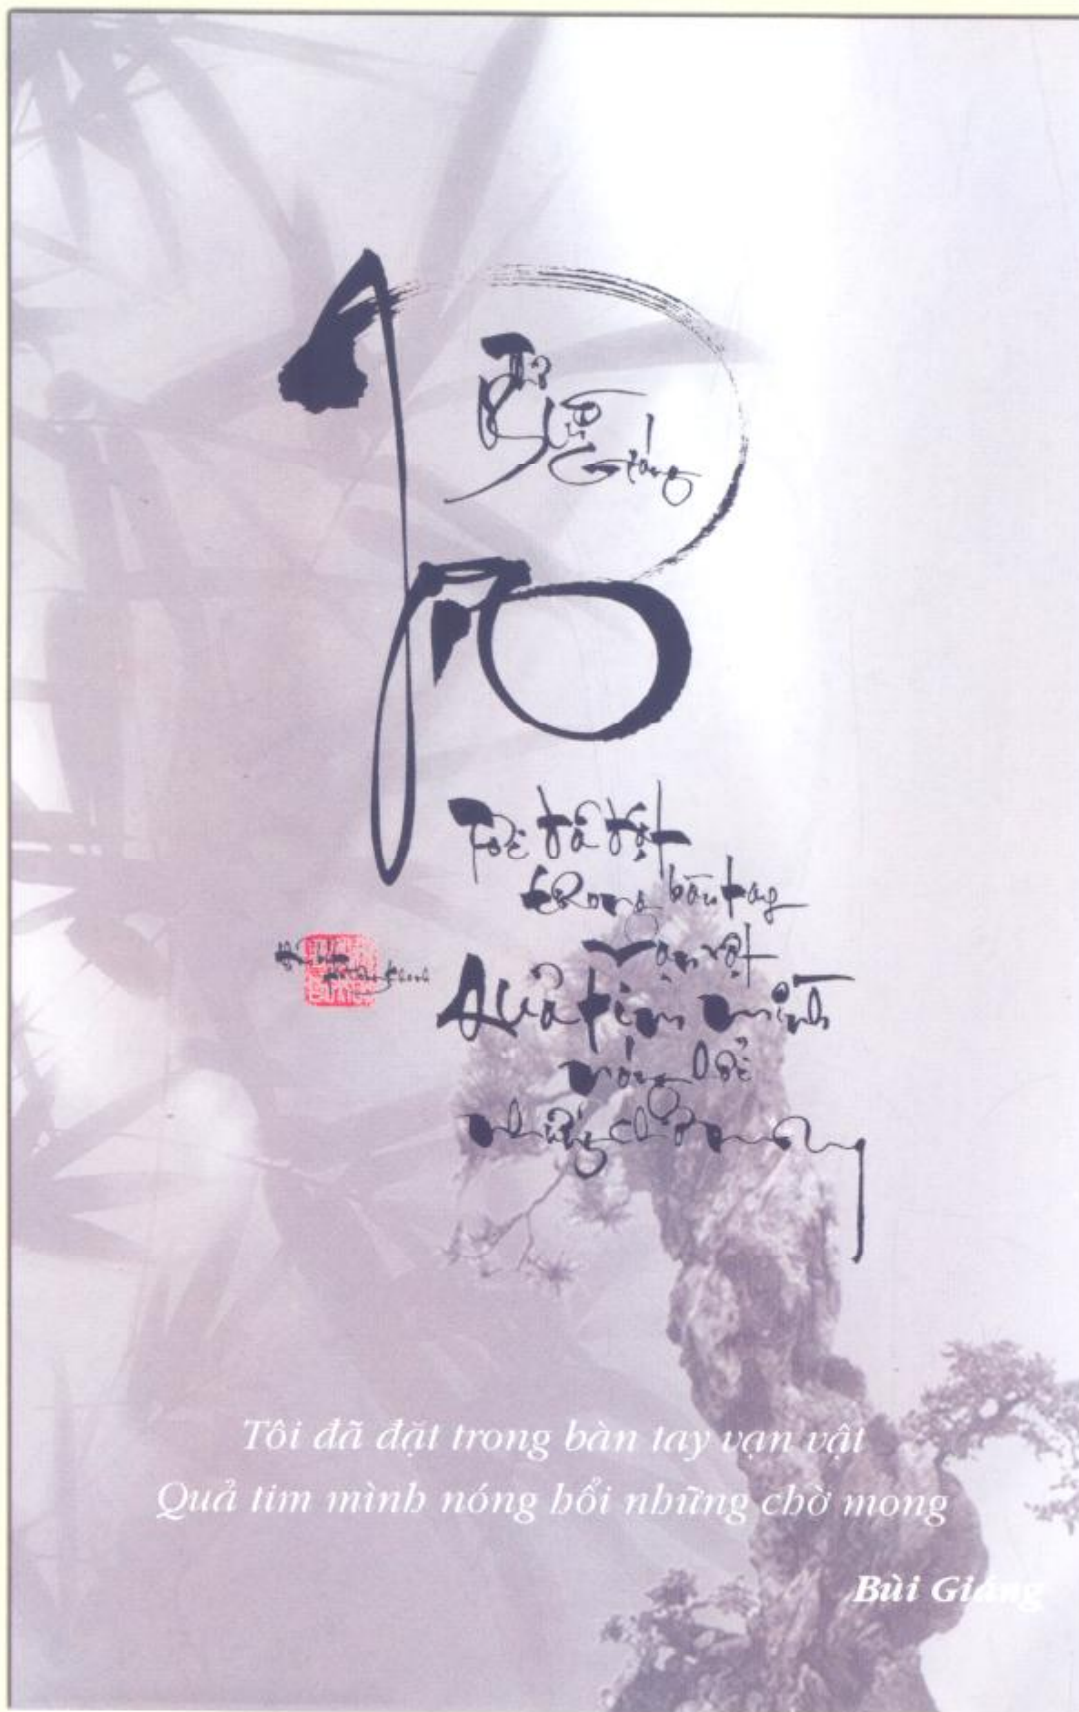 Từ
Bùi Giáng
Tôi đã đặt
trong bàn tay
vạn vật
Quả tim mình
nóng hổi
những chờ mong
Tôi đã đặt trong bàn tay vạn vật
Quả tim mình nóng hổi những chờ mong
Bùi Giáng